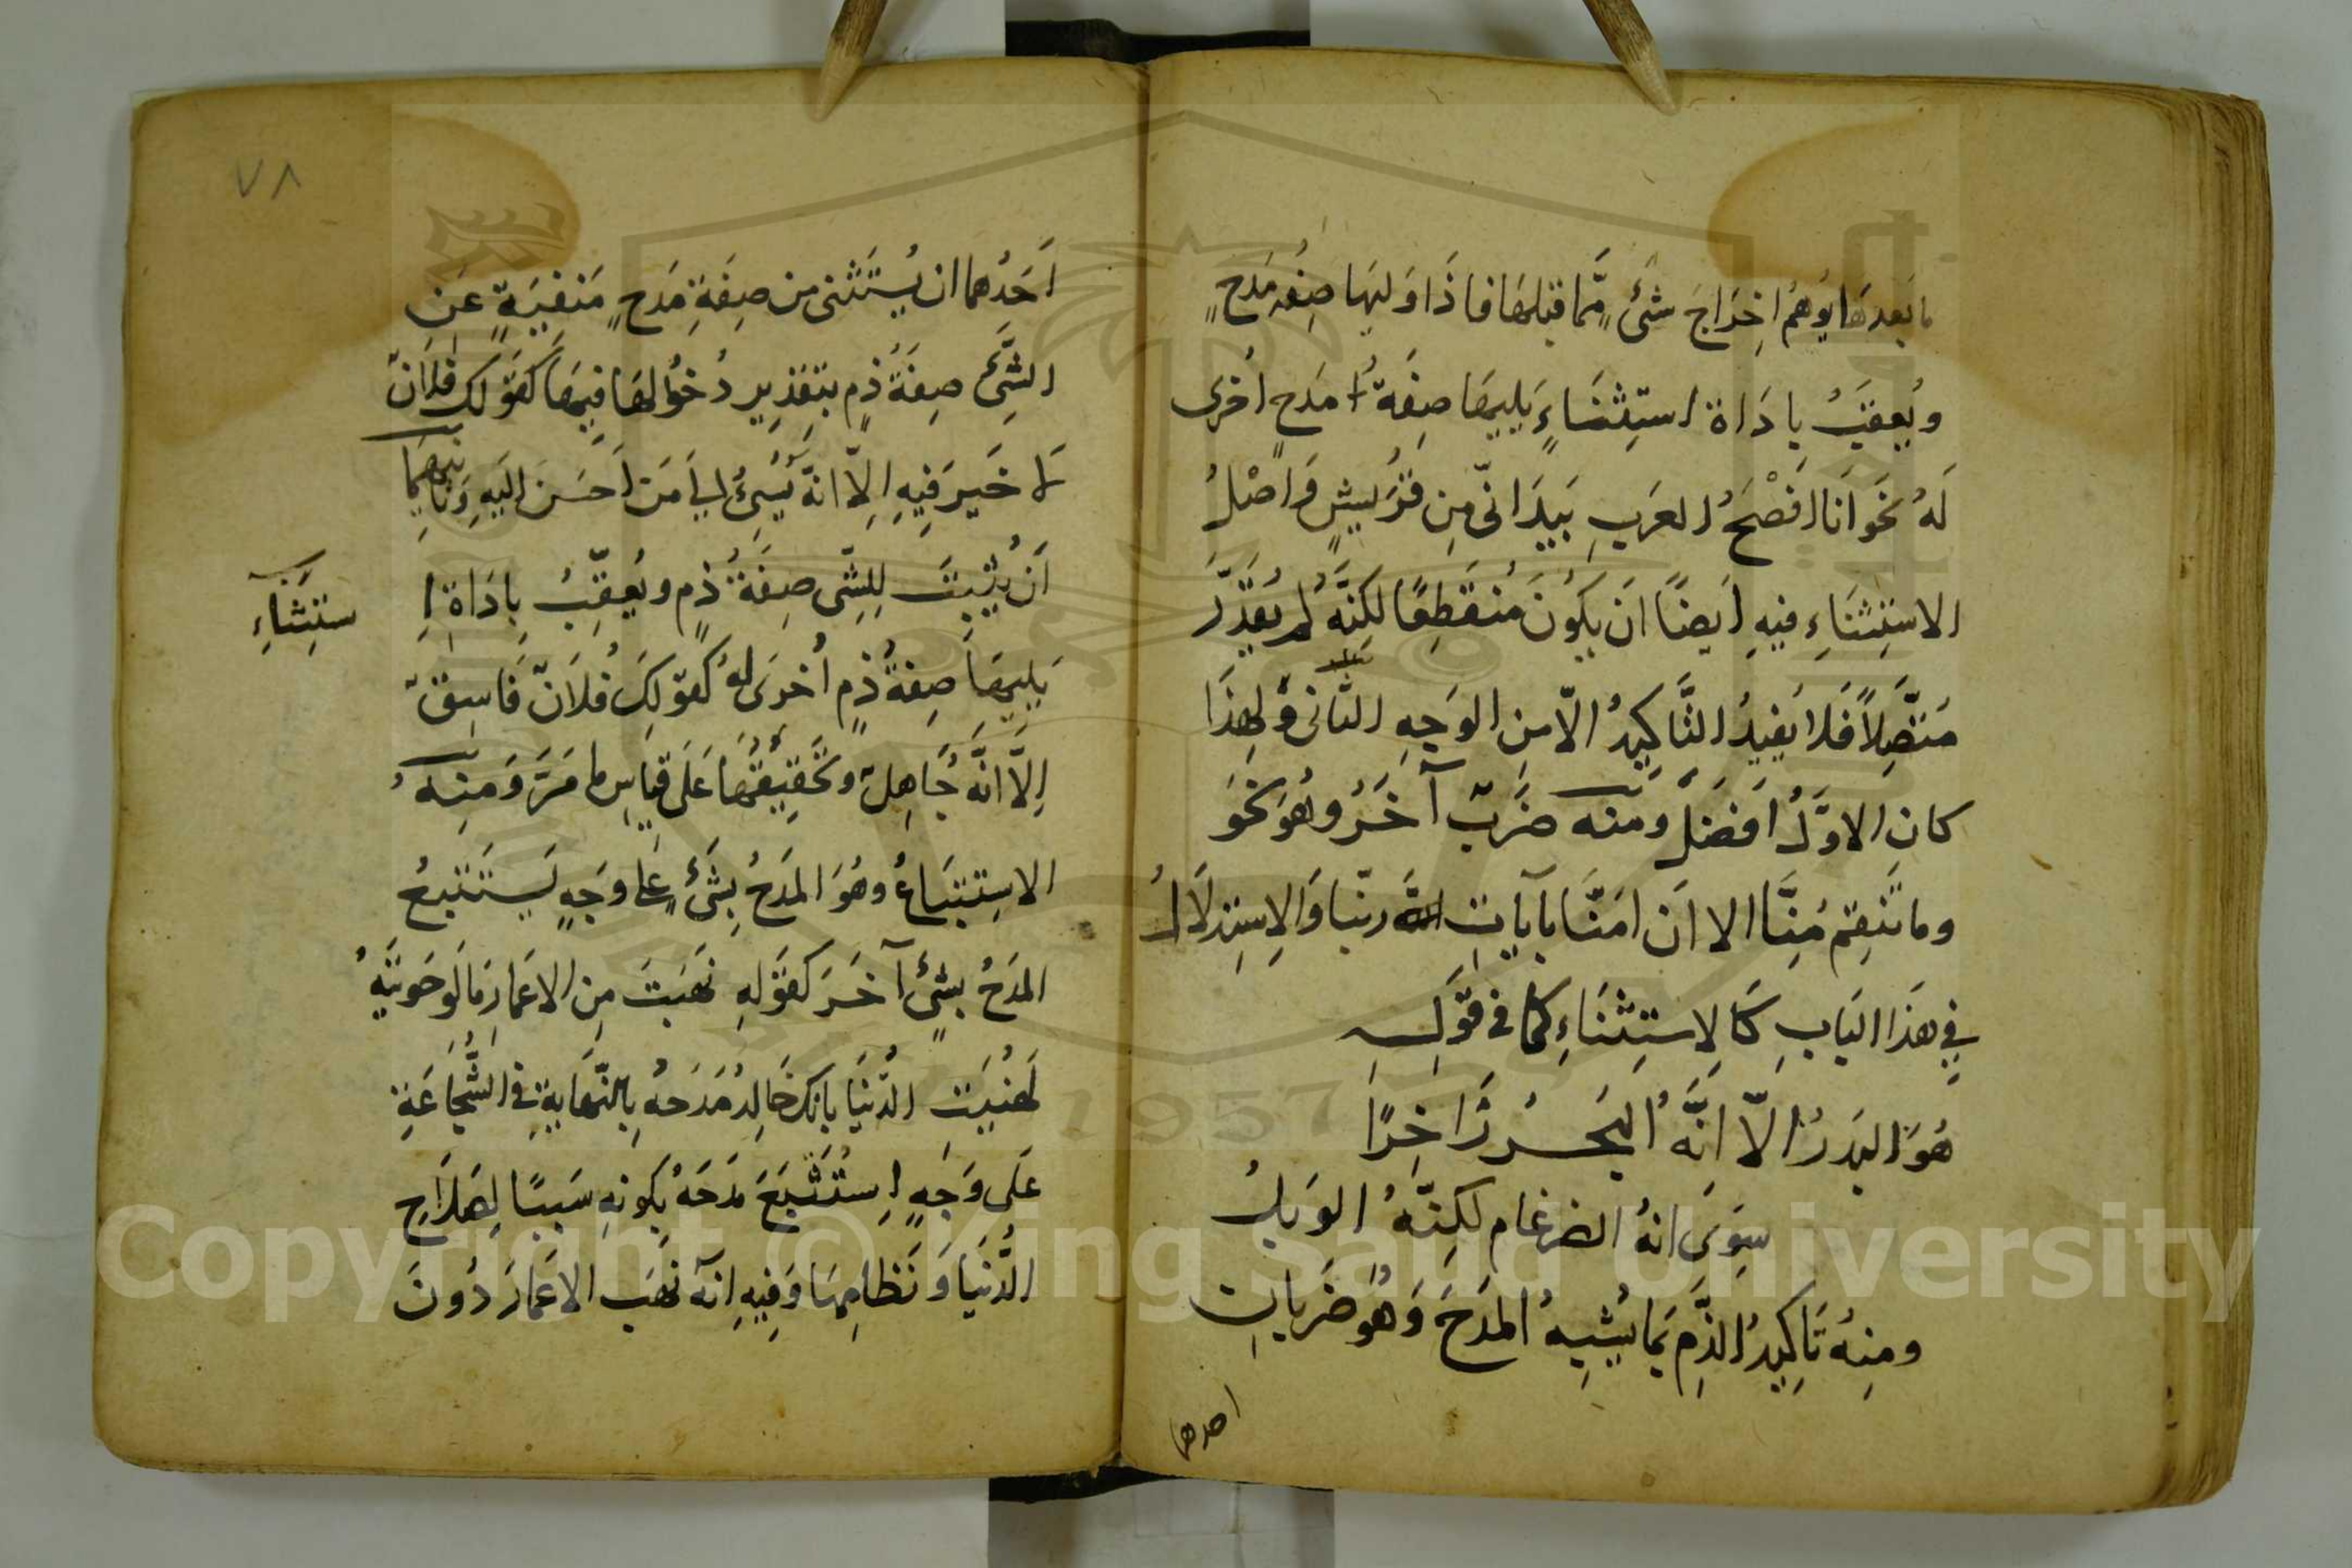 ما بَعدهَا يُوهمُ اخِرَاجَ شئٍ مّما قبلهَا فاذَا وَليَها صِفُه مَدحٍ
ويُعقبُ باداَة استِثنَاءٍ يَليهَا صِفَةُ مَدحِ اخرى
لَهُ نحَو انَا افَصْحُ العَربِ بَيدَ انّى مِن قُرَيشٍ وَاصْلُ
الاستِثنَاءِ فيهِ ايَضًا انَ يكوُنَ مُنقَطِعًا لكِنّهُ لم يُقَدّر
مُتّصِلاً فَلا يُفيدُ التَّاكِيدُ الاّ مِن الوَجهِ الثّانى وَلهِذَا
كان الاوّلُ افَضَلُ ومنه ضَربٌ آخَرُ وهُوَ نحَوَ
وما تَنقِم مُنِّا الا اَن امَنّا بآياتِ الله ربّنا وَالاِستِدلاَلُ
فِي هَذا البَابِ كَالاِستِثنَاءِ كما في قَولِه
هُوَ البَدرُ الاّ انّهُ البَحرُ زَاخِرًا
سِوَى انهُ الضرغام لكِنّهُ الوَبلُ
ومنِهُ تَاكِيدُ الذّمِ بمَا يُشبِهُ المدَحَ وَهُو ضَربانِ
احدها
٧٨
اَحَدُهما ان يُستَثنى من صِفَةِ مَدحٍ مَنفيَةٍ عَن
الشّئ صِفَةُ ذمٍ بتقدِيرِ دُخوُلهَا فِيهَا كقَولك فلاَنٌ
لا خَيرَ فِيهِ الِاّ انهّ يُسِئُ اليَ مَن احَسَنَ اليَهِ وثانيهُما
اَن يُثبِتَ لِلِشّى صِفَةُ ذمٍ ويُعقّبُ بِادَاة اِ
ستِثنَاءِ
يَليهَا صِفةُ ذمٍ اُخرَى لهُ كقَولكَ فُلاَنٌ فَاسِقٌ
اِلاَّ انّهَ جَاهِلٌ وتحَقيقُهَا عَلَى قيَاسِ ما مَرّ وَمنِهُ
الاستِتبَاعُ وهُوَ المدَحُ بِشئٍ علَى وَجَهٍ يَستَتبعُ
المدَحُ بشئٍ آخَرَ كقَولهِ نهَبَتَ مِن الاعَمارِ مَا لَو حَويَتَهُ
لَهنُيَت الدّنيَا بانكَ خَالِدُ مَدَحَهُ بِالنّهَايةِ في الشّجَاعَةِ
عَلَى وَجَهٍ اِستُتَبَعَ مَدَحَهُ بِكونِهِ سَببًا لِصَلاَحِ
الدُّنيَا وَنَظامِهَا وَفيِهِ انهّ نهَب الاعَمارَ دُونَ
Copyright © King Saud University
1957